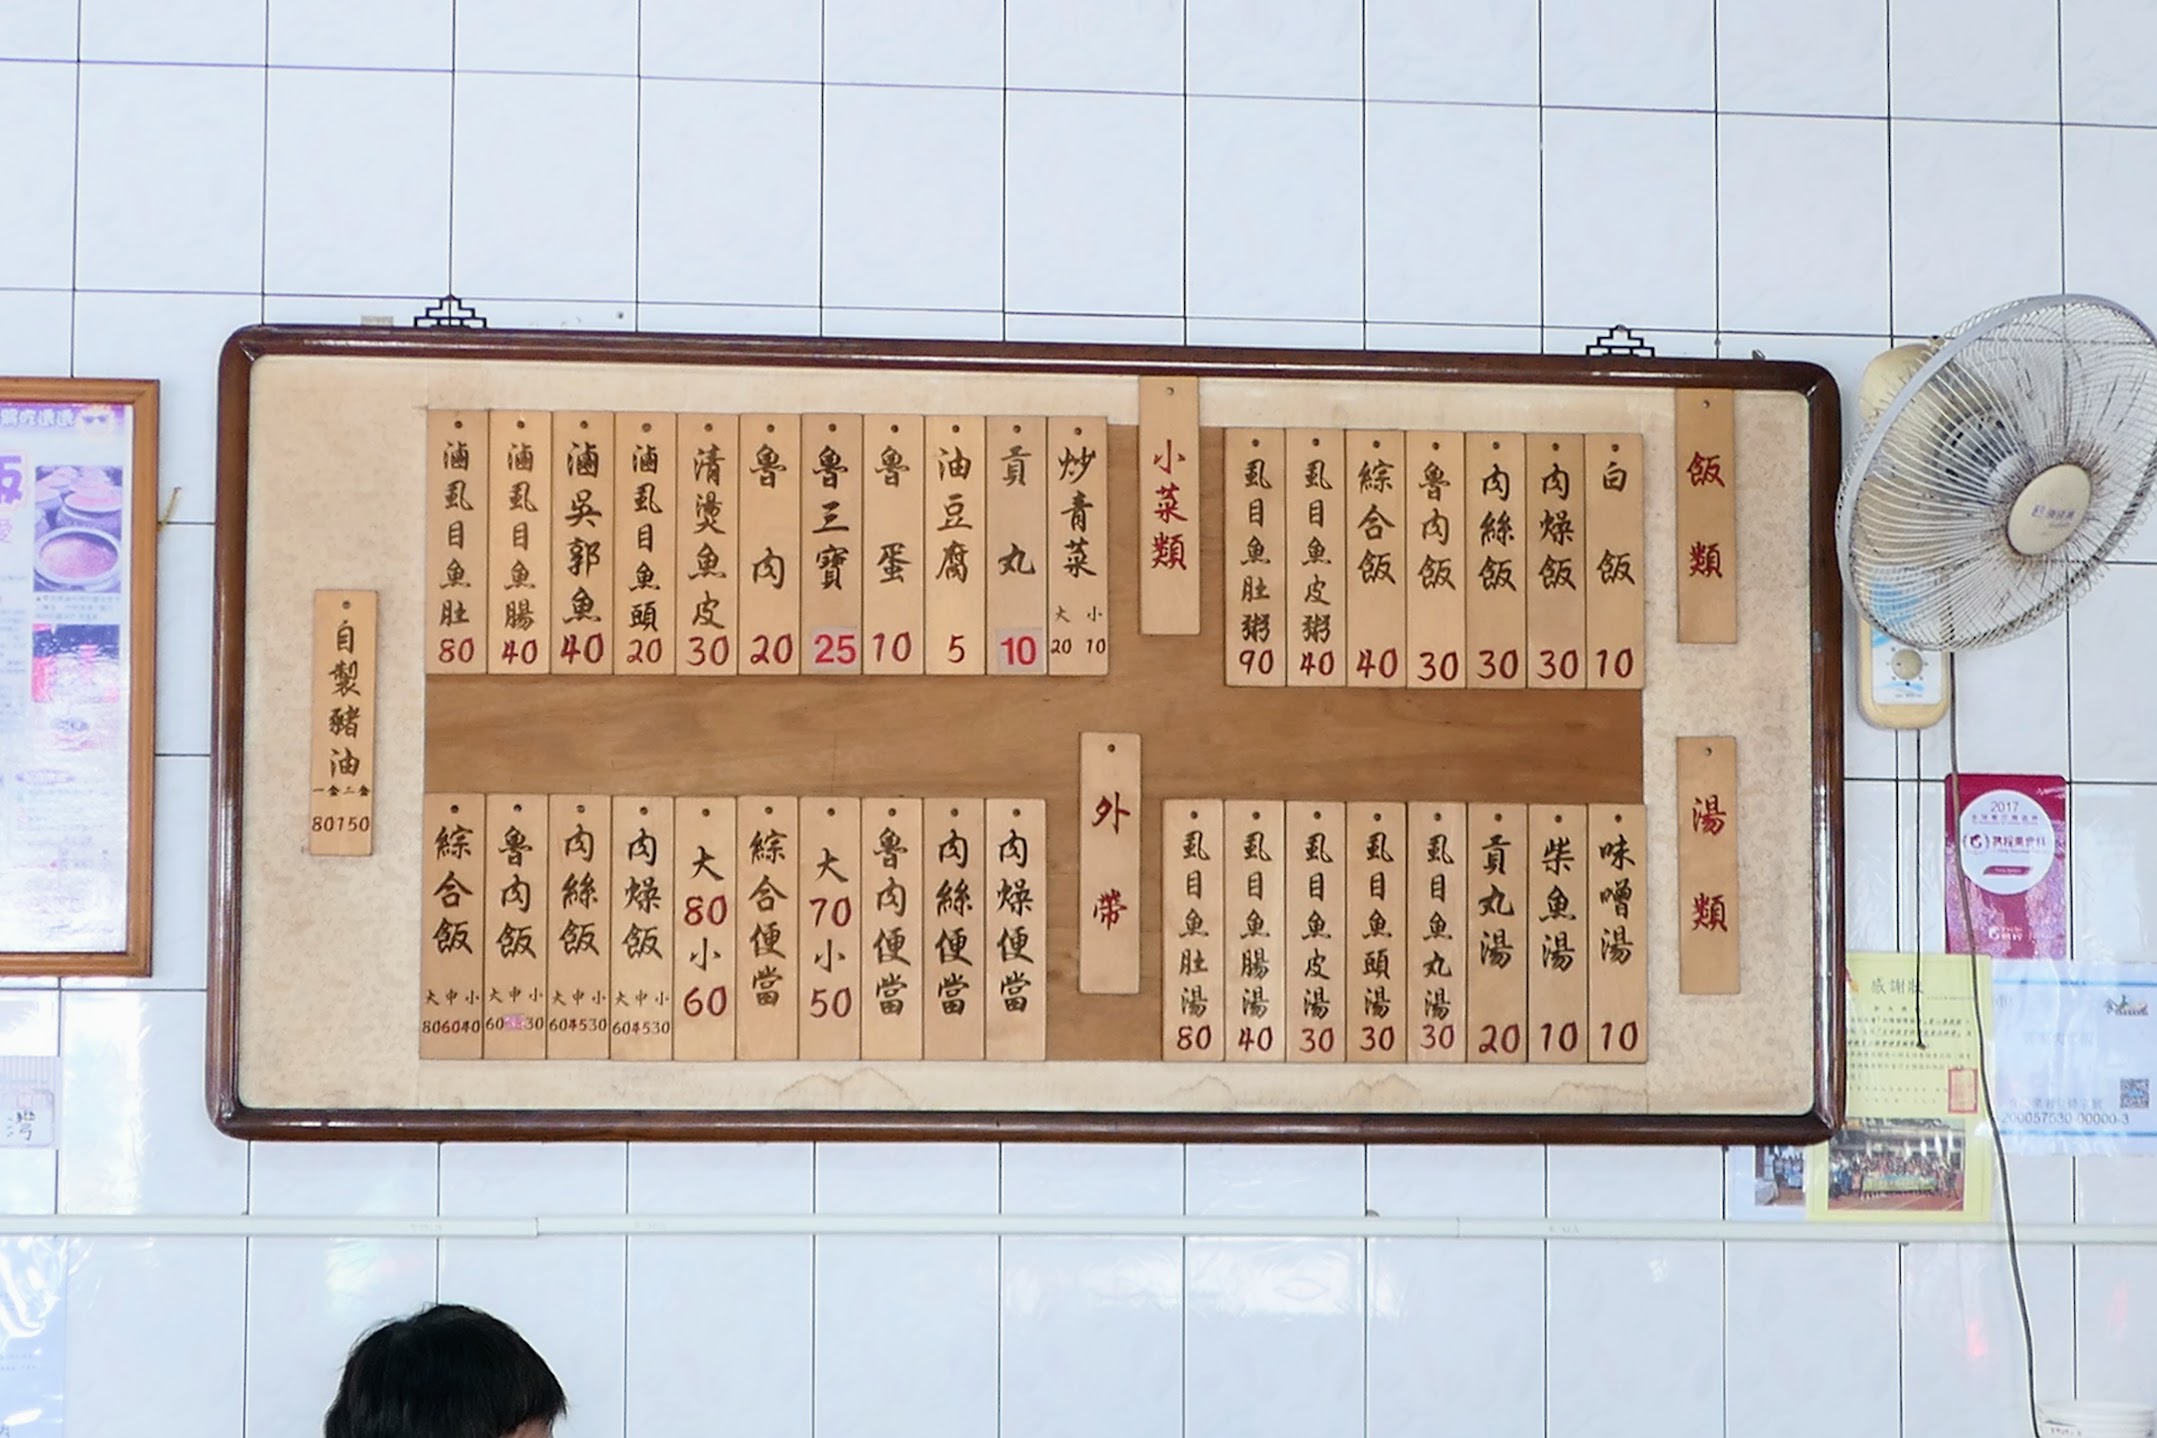 飯類
白飯 10
肉燥飯 30
肉絲飯 30
魯肉飯 30
綜合飯 40
虱目魚皮粥 40
虱目魚肚粥 90
小菜類
炒青菜 大 小 20 10
貢丸 10
油豆腐 5
魯蛋 10
魯三寶 25
魯肉 20
清燙魚皮 30
滷虱目魚頭 20
滷吳郭魚 40
滷虱目魚腸 40
滷虱目魚肚 80
自製豬油 80 150
湯類
味噌湯 10
柴魚湯 10
貢丸湯 20
虱目魚丸湯 30
虱目魚頭湯 30
虱目魚皮湯 30
虱目魚腸湯 40
虱目魚肚湯 80
外帶
肉燥便當
肉絲便當
魯肉便當
大70小50
綜合便當
大80小60
肉燥飯 大中小 60 45 30
肉絲飯 大中小 60 45 30
魯肉飯 大中小 60 30
綜合飯 大中小 80 60 40
2017
感謝狀
200057530-00000-3